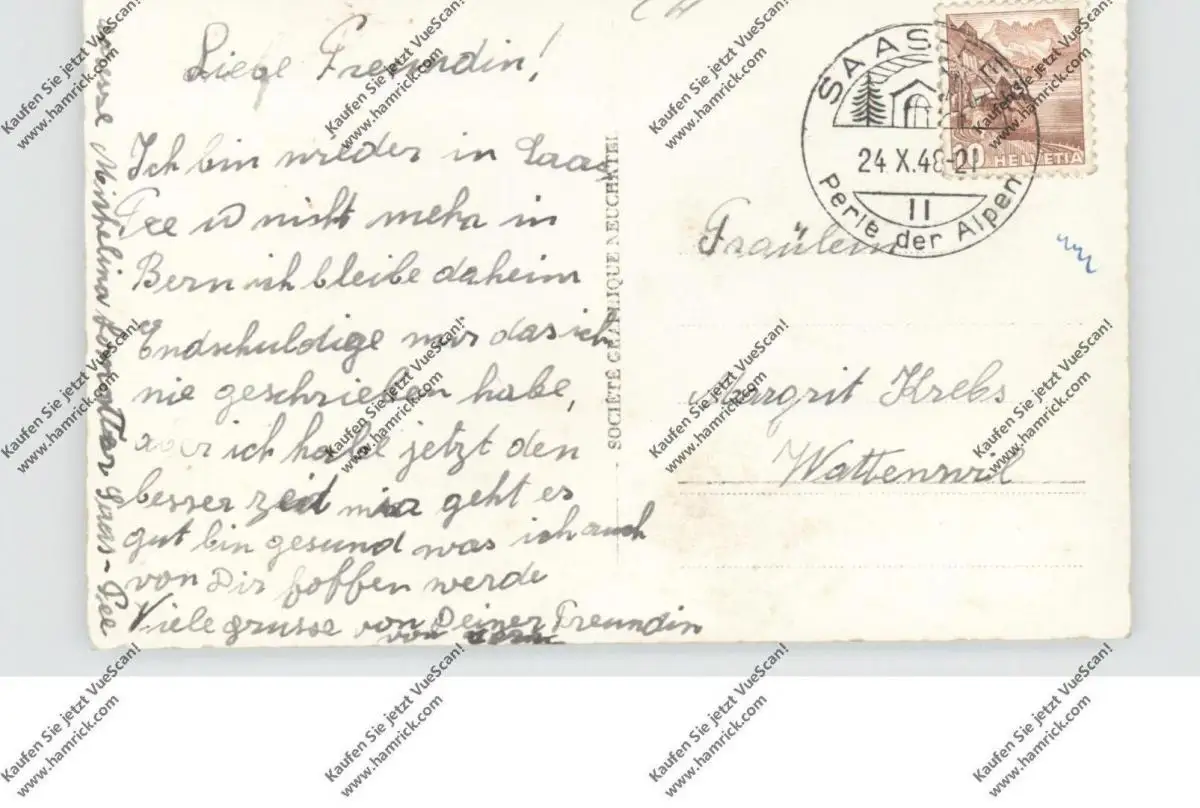 Liebe Freundin!
Ich bin wieder in Saas
Fee u nicht mehr in
Bern ich bleibe daheim
Endschuldige mir das ich
nie geschrieben habe,
aber ich habe jetzt den
besser zeid mir geht es
gut bin gesund was ich auch
von Dir hoffen werde
Viele grusse von Deiner Freundin
von
Saas-Fee
SOCIÉTÉ GRAPHIQUE NEUCHATEL
SAAS-FEE
24.X.48-21
II
Perle der Alpen
HELVETIA
Fraülein
Margrit Krebs
Wattenwil
Kaufen Sie jetzt VueScan!
www.hamrick.com